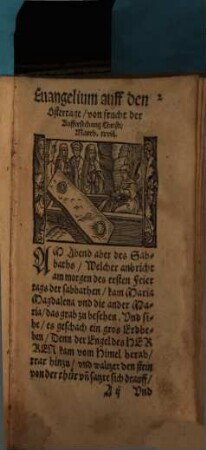 Euangelium auff den
Ostertage / von frucht der
Aufferstehung Christi
Matth. xxviij.
2
AM Abend aber des Sab-
baths / Welcher anbricht
am morgen des ersten Feier
tags der sabbathen / kam Maria
Magdalena vnd die ander Ma-
ria / das grab zu besehen. Vnd si-
he / es geschach ein gros Erdbe-
ben / Denn der Engel des HER
REN kam vom Himel herab /
trat hinzu / vnd waltzet den stein
von der thür vñ satzte sich drauff /
A ij Vnd